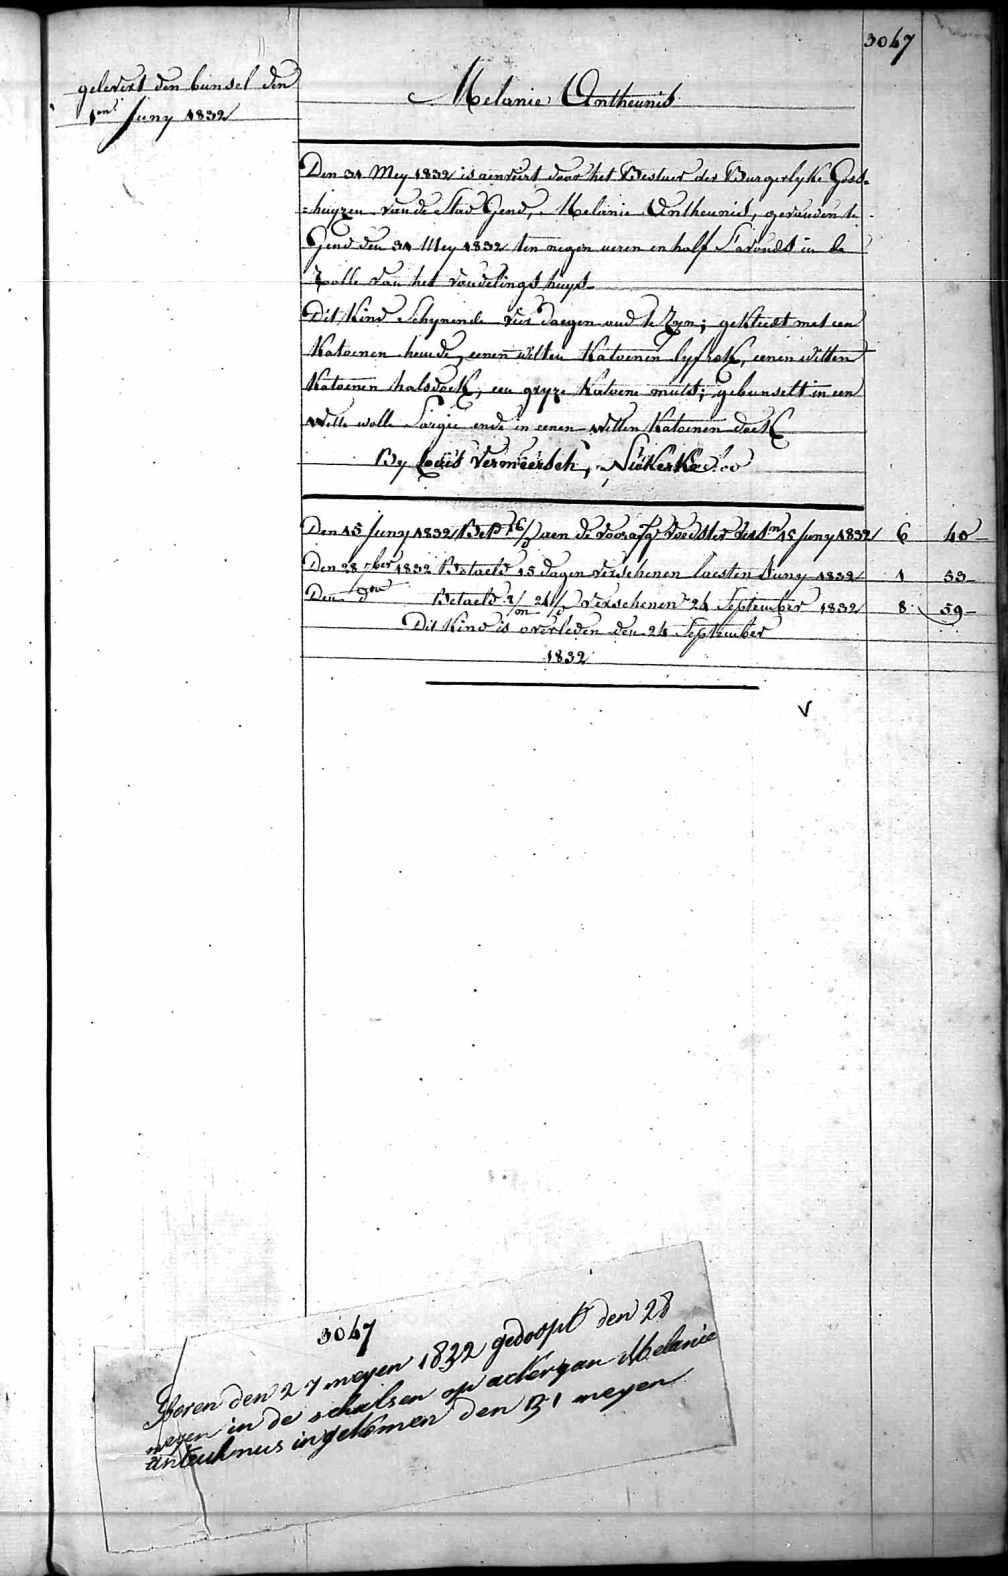 3047
gelevert den bunsel den
1en Juny 1832
Melanie Antheunis
Den 31 Mey 1832 is aenveirt door het Bestuer der Burgerlyke Gods-
=huyzen van de Stad Gend, Melanie Antheunis, gevonden te
Gend den 31 Mey 1832 ten negen ueren en half S'avonds in de
Rolle van het vondelings huys
Dit Kind Schynende vier daegen oud te Zyn; gekleedt met een
Katoenen hemde, eenen witten Katoenen lyfrok, eenen witten
Katoenen halsdoek, een gryze Katoene muts; gebunselt in een
witte wolle Sargie ende in eenen witten Katoenen doek
By Louis Vermeersch,
Den 15 Juny 1832 aen de voorafg voedster 15 Juny 1832 6 40
Den 28 1832 Betaeld 15 dagen verschenen laesten Juny 1832 1 53
Den do Betaeld verschenen 24 September 1832 8 59
Dit Kind is overleden den 24 September
1832
V
3047
Boren den 27 meyen 1832 gedoopt den 28
meyen in de schalsen op ackergan Melanie
anteuhnus ingekomen den 31 meyen